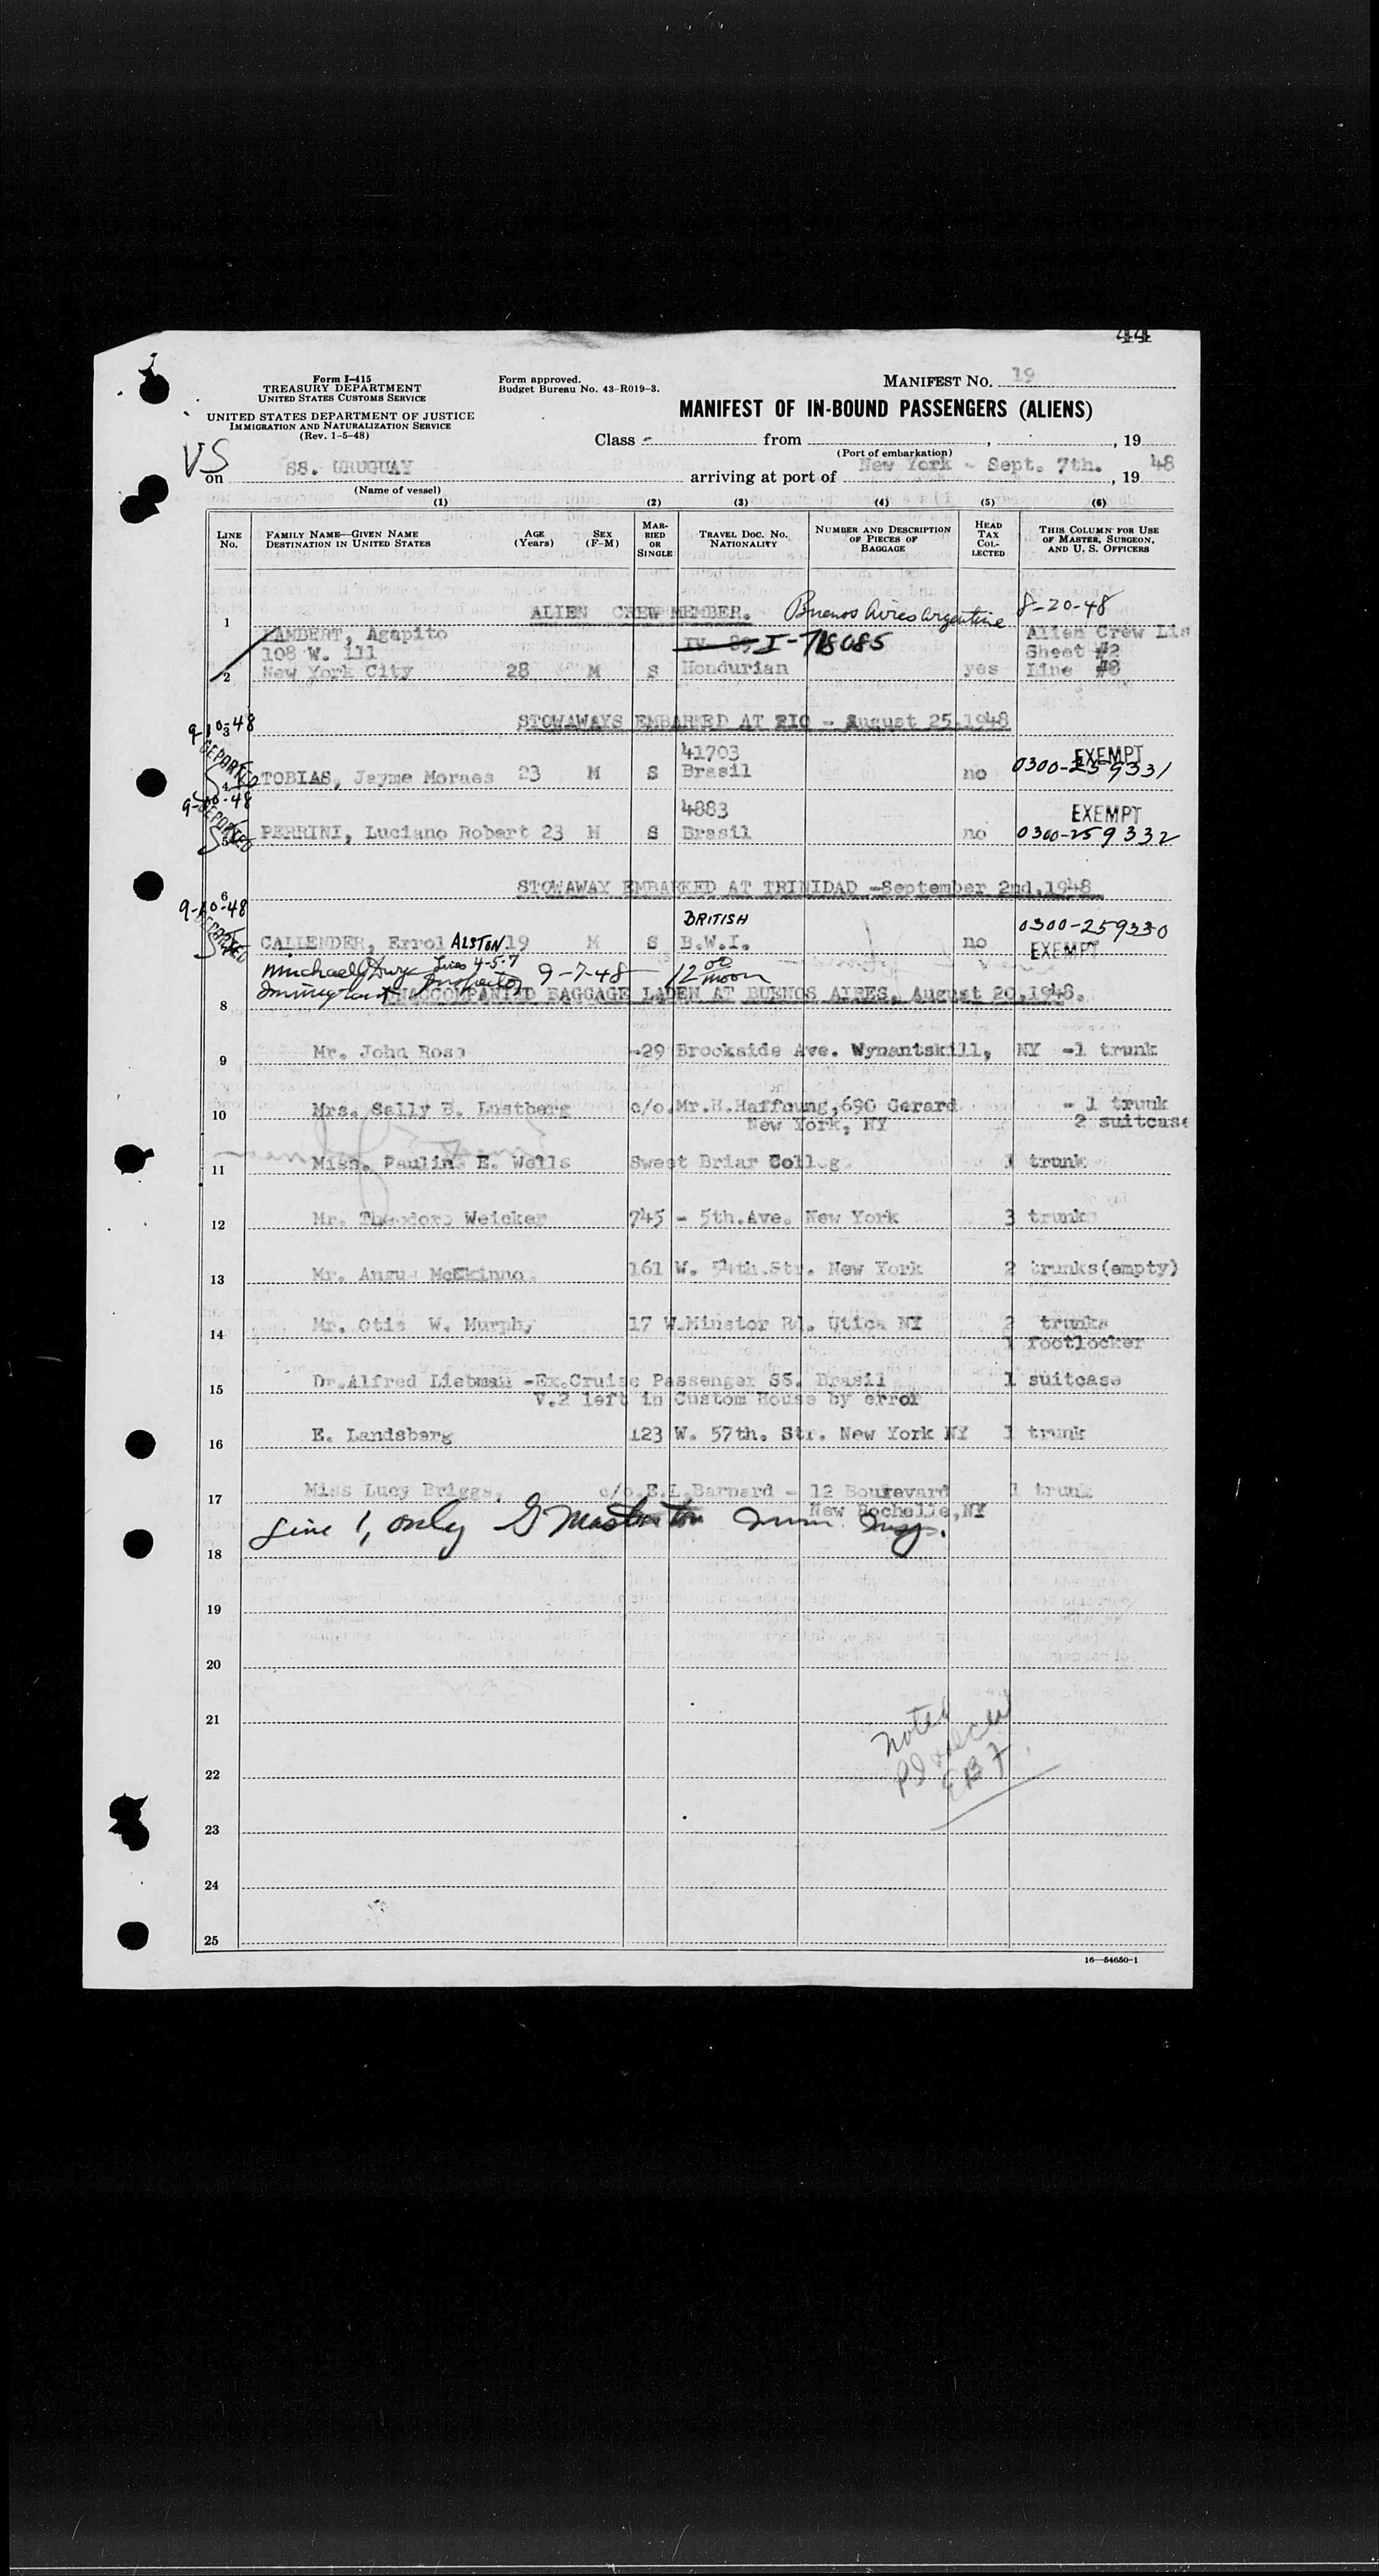 44
Form I-415
TREASURY DEPARTMENT
UNITED STATES CUSTOMS SERVICE
UNITED STATES DEPARTMENT OF JUSTICE
IMMIGRATION AND NATURALIZATION SERVICE
(Rev. 1-5-48)
Form approved.
Budget Bureau No. 43-R019-3.
MANIFEST NO. 19
MANIFEST OF IN-BOUND PASSENGERS (ALIENS)
Class - from , , 19
(Port of embarkation)
VS
on SS. URUGUAY arriving at port of New York - Sept. 7th. , 19 48
(Name of vessel)
(1) (2) (3) (4) (5) (6)
LINE No.
FAMILY NAME—GIVEN NAME
DESTINATION IN UNITED STATES
AGE (Years)
SEX (F-M)
MARRIED OR SINGLE
TRAVEL DOC. NO.
NATIONALITY
NUMBER AND DESCRIPTION OF PIECES OF BAGGAGE
HEAD TAX COLLECTED
THIS COLUMN FOR USE OF MASTER, SURGEON, AND U. S. OFFICERS
1 ALIEN CREW MEMBER. Buenos Aires Argentine 8-20-48
LAMBERT, Agapito I-718085 Alien Crew Lis
108 W. 111 Sheet #2
2 New York City 28 M S Hondurian yes Line #8
9-10-48
3 STOWAWAYS EMBARKED AT RIO - August 25.1948
DEPORTED
41703 EXEMPT
4 TOBIAS, Jayme Moraes 23 M S Brasil no 0300-259331
9-10-48
DEPORTED
4883 EXEMPT
5 PERRINI, Luciano Robert 23 M S Brasil no 0300-259332
6 STOWAWAY EMBARKED AT TRINIDAD -September 2nd.1948
9-10-48
DEPORTED
BRITISH 0300-259330
CALLENDER, Errol ALSTON 19 M S B.W.I. no EXEMPT
Michael Lines 4-5-7 9-7-48 12 00 noon
Immigrant Inspector
8 UNACCOMPANIED BAGGAGE LADEN AT BUENOS AIRES, August 20.1948.
9 Mr. John Rose -29 Brookside Ave. Wynantskill, NY -1 trunk
10 Mrs. Sally B. Lustberg c/o.Mr.H.Haffnung,690 Gerard - 1 trunk
New York, NY 2 suitcase
11 Miss. Pauline E. Wells Sweet Briar Colleg 1 trunk
12 Mr. Theodore Weicker 745 - 5th.Ave. New York 3 trunks
13 Mr. Angus 161 W. 54th.Str. New York 2 trunks(empty)
14 Mr. Otis W. Murphy 17 W.Minstor Rd. Utica NY 2 trunks
1 footlocker
15 Dr.Alfred Liebman -Ex.Cruise Passenger SS. Brasil 1 suitcase
V.2 left in Custom House by error
16 E. Landsberg 123 W. 57th. Str. New York NY 1 trunk
17 Miss Lucy Briggs. c/o.E.L.Barnard - 12 Bougevard 1 trunk
New Rochelle,NY
Line 1, only Imm. Insp.
18
19
20
21
Noted
22
23
24
25
16—54650-1